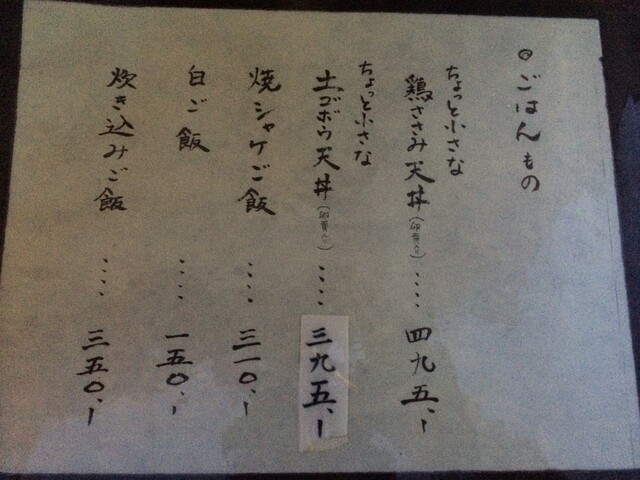 ◎ごはんもの
ちょっと小さな
鶏ささみ天丼(卵黄入り)‥‥四九五、ー
ちょっと小さな
土ゴボウ天丼(卵黄入り)‥‥三九五、ー
焼シャケご飯‥‥三一〇、ー
白ご飯‥‥一五〇、ー
炊き込みご飯‥‥三五〇、ー